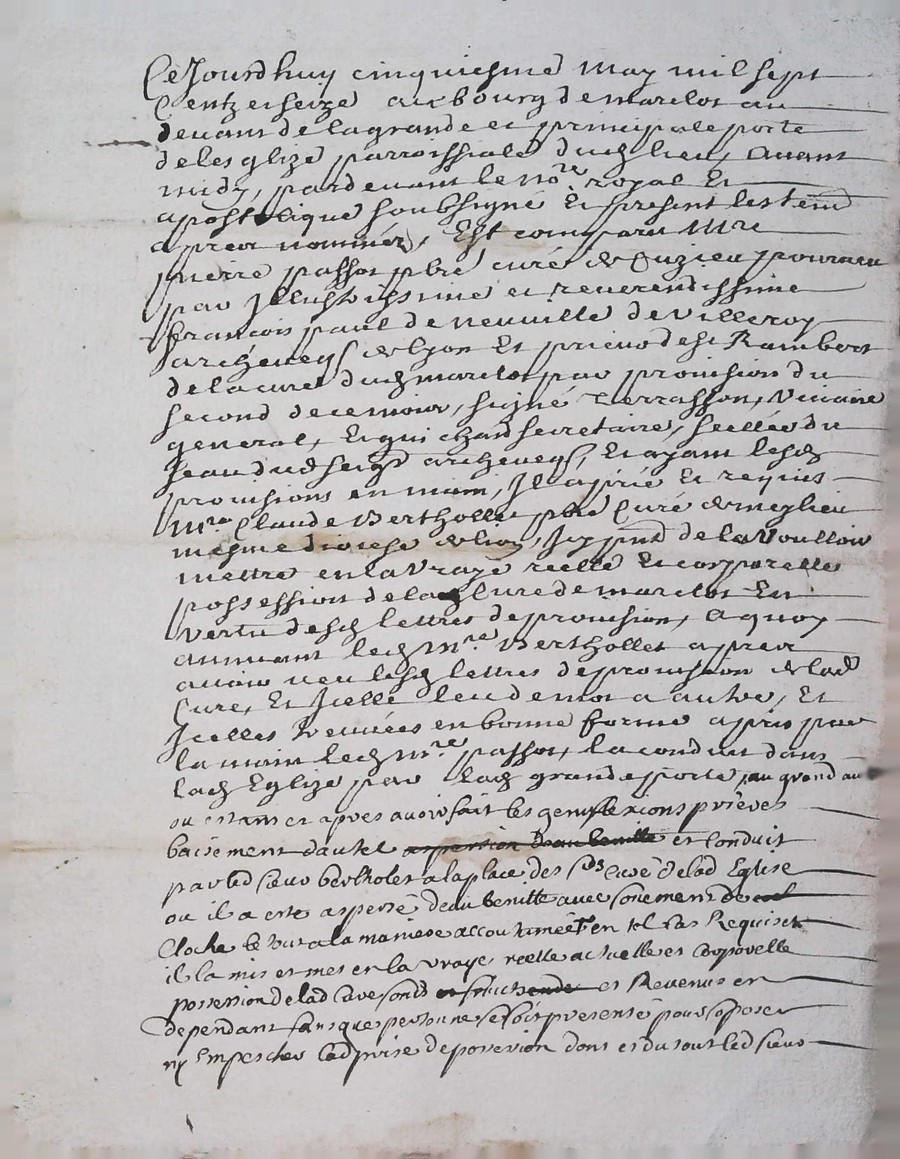 Ce Jourdhuy cinquiesme may mil sept
Centz et seize au bourg de marclot au
devant de la grande et principale porte
de lesglize parroissialle dud lieu, avant
midy, pardevant le no.re royal Et
apostolique soubsigné Et present les tem
apres nommés, Est comparu Mre
pierre passot pbre curé de pourveu
par Jllustrissime et reverendissime
francois paul de neuville de Villeroy
archevesq de lyon Et prieur de st Rambert
de la cure dud marclot par provision du
second de ce mois, signé Terrasson, Vicaire
general, Et qui chard secretaire, scellée du
seau dud seigr archevesq, Et ayant lesd
provisions en main, Jl a prié et requis
Mre Claude Bertholet pbre Curé de
mesme diocese de lion, Jcy pnt de la Voulloir
mettre en la Vraye reelle Et corporelle
possession de lad Cure de marclot En
vertu desd lettres de provision, a quoy
annuant led M.re Berthollet apres
avoir veu lesd lettres de provision de lad
Cure, Et Jcelle leu de mot a autre, Et
Jcelles treuvées en bonne forme a pris par
la main led M.re passot, la conduit dans
lad Eglize par lad grande porte, au grand au
ou estant et apres avoir fait les genuflexions prieres
baisement dautel aspersion deau benitte et conduit
par led sieur bertholet a la place des srs curé de lad Eglise
ou il a esté aspersé deau benitte avec sonement de
Cloche le tout a la maniere accoutumée Et en tel cas Requise
il la mis et met en la vraye reelle actuelle et corporelle
possession de lad cure fonds et Revenus en
dependant sans que personne se soit presenté pour soposer
ny Empescher lad prise de possession dont et du tout led sieur